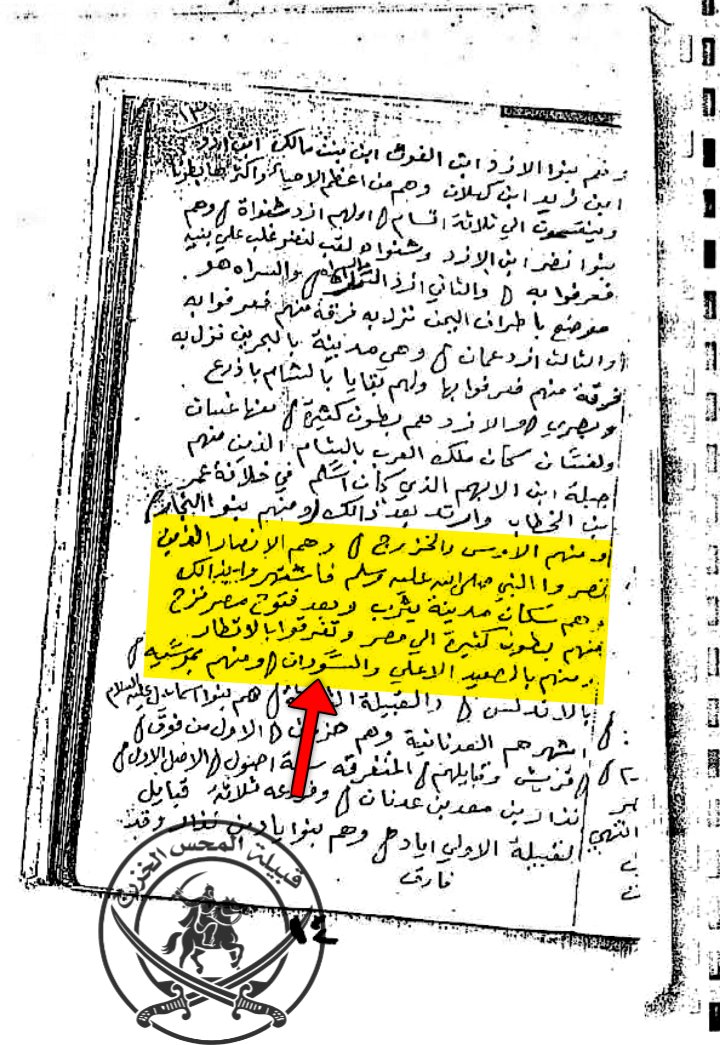 ١٣
ومنهم بنوا الازد ابن الغوث ابن بنت مالك ابن ادد
ابن زيد ابن كهلان وهم من اعظم الاحياء واكثرها بطونا
وينقسموت الي ثلاثة اقسام اولهم ازد شنواة وهم
بنوا نضر ابن الازد وشنواه لقب لنضر غلب علي بنيه
فعرفوا به والثاني ازد السراه والسراه هو
موضع باطراف اليمن نزل به فرقة منهم فعرفوا به
والثالث ازد عمان وهي مدينة بالبحرين نزل به
فرقة منهم فعرفوا بها ولهم بقايا بالشام باذرع
وبصري والازد هم بطون كثيرة منها غسان
ولغسان كان ملك العرب بالشام الذين منهم
جبلة ابن الايهم الذي كان اسلم في خلافة عمر
بن الخطاب وارتد بعد ذالك ومنهم بنوا النجار
ومنهم الاوس والخزرج وهم الانصار الذين
نصروا النبي صلى الله عليه وسلم فاشتهروا بذالك
وهم سكان مدينة يثرب وبعد فتوح مصر نزح
منهم بطون كثيرة الي مصر وتفرقوا بالاقطار
ومنهم بالصعيد الاعلي والسودان ومنهم
بالاندلس والقبيلة هم بنوا اسماعيل عليه السلام
اشهرهم العدنانية وهم الاول من فوق
قريش وقبايلهم المتفرقه اصول الاصل الاول
نزار بن معد بن عدنان وفروعه ثلاثة قبايل
لقبيلة الاولي اياد وهم بنوا اياد بن نزار وقد
فارق
انتهي
قبيلة المحس الخزرج